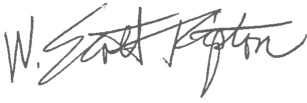 W. Scott Tipton